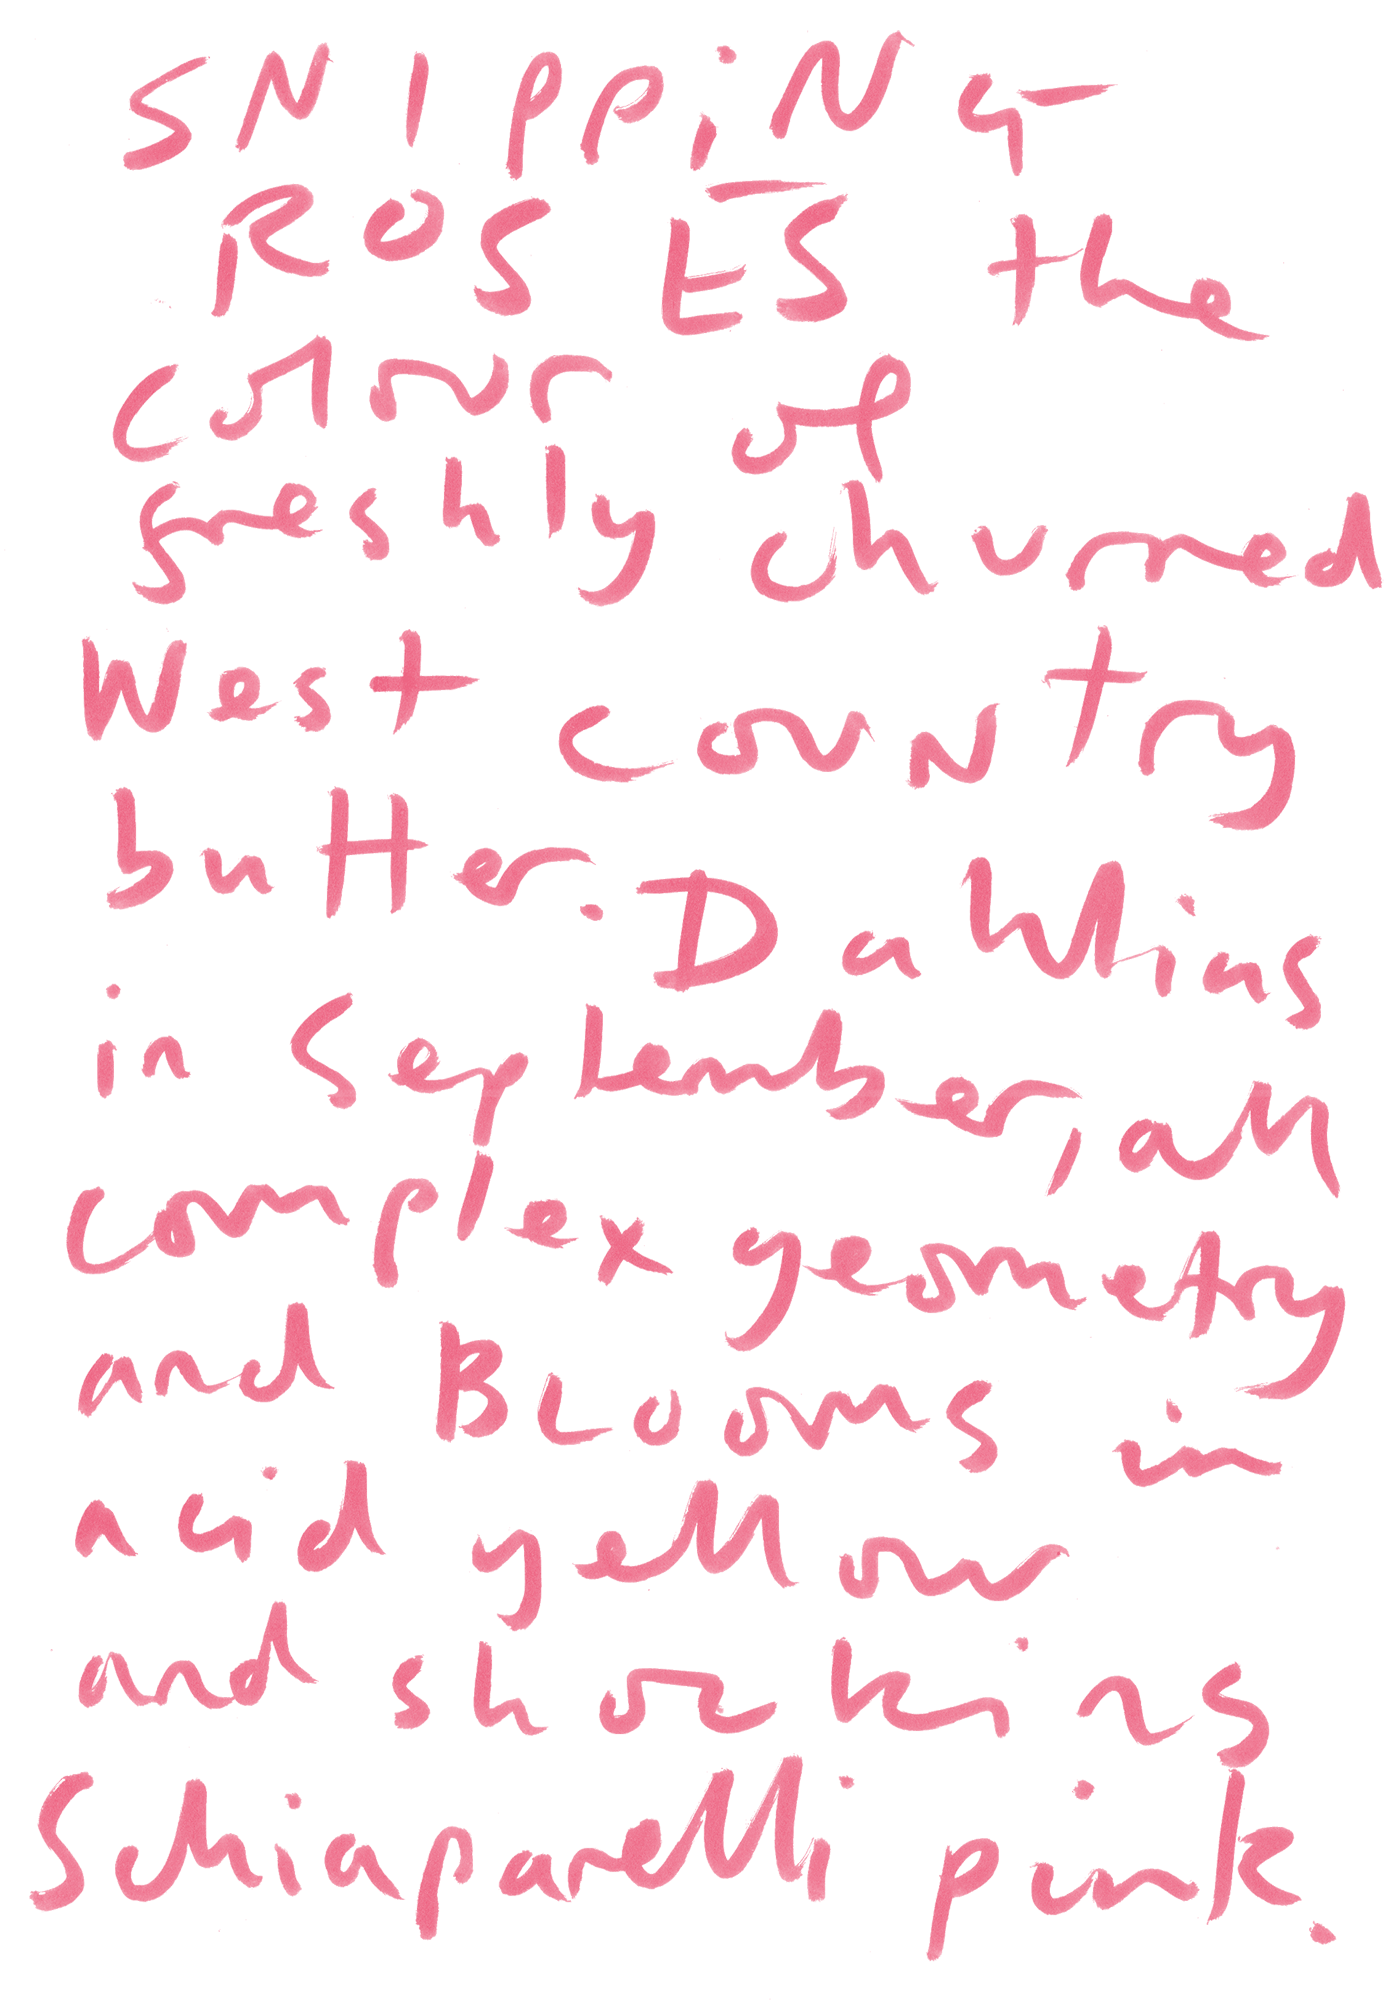 SNIPPiNG
ROSES the
colour of
freshly churned
West country
butter. Dahlias
in September, all
complex geometry
and BLooms in
acid yellow
and shocking
Schiaparelli pink.